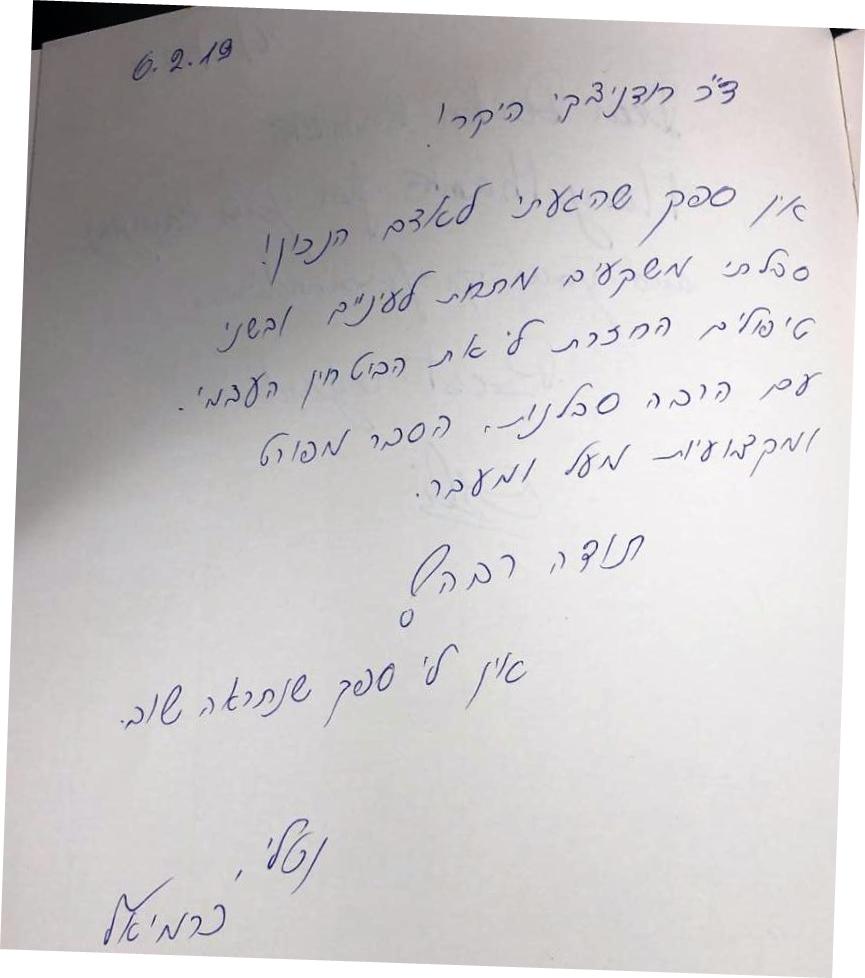 6.2.19
ד"ר רודניצקי היקר!
אין ספק שהגעתי לאדם הנכון!
סבלתי משקעים מתחת לעיניים ובשני
טיפולים החזרת לי את הביטחון העצמי.
עם הרבה סבלנות, הסבר מפורט
ומקצועיות מעל ומעבר.
תודה רבה!
אין לי ספק שנתראה שוב.
נטלי,
כרמיאל